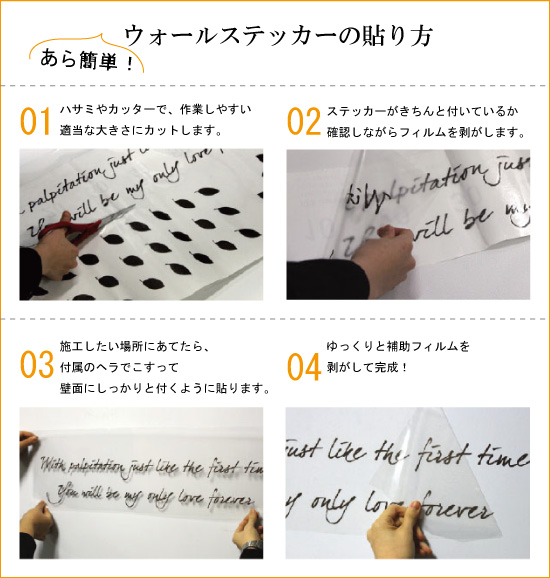 ウォールステッカーの貼り方
あら簡単！
01
ハサミやカッターで、作業しやすい
適当な大きさにカットします。
02
ステッカーがきちんと付いているか
確認しながらフィルムを剥がします。
palpitation just li
will be my only love
palpitation jus
will be my
03
施工したい場所にあてたら、
付属のヘラでこすって
壁面にしっかりと付くように貼ります。
04
ゆっくりと補助フィルムを
剥がして完成！
With palpitation just like the first tim
You will be my only love forever
just like the first time
my only love forever